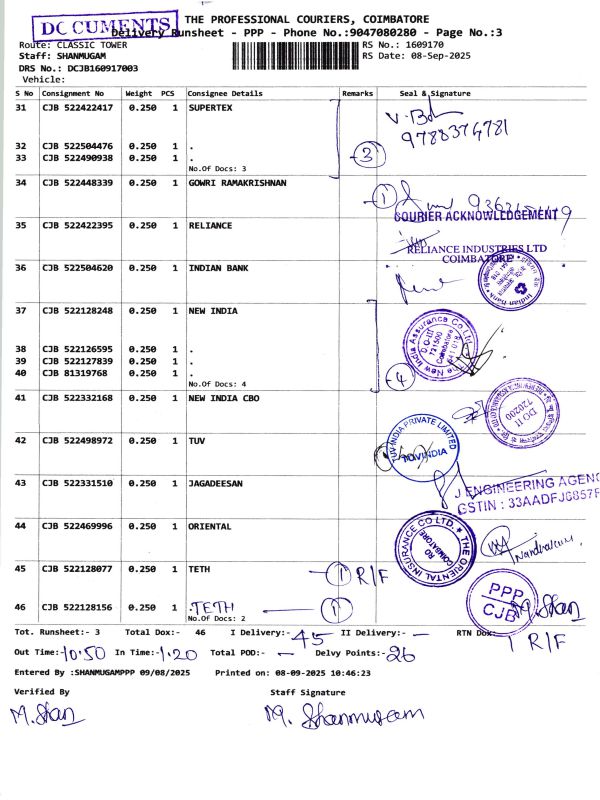 DOCUMENTS
THE PROFESSIONAL COURIERS, COIMBATORE
Delivery Runsheet - PPP - Phone No.:9047080280 - Page No.:3
Route: CLASSIC TOWER
RS No.: 1609170
Staff: SHANMUGAM
RS Date: 08-Sep-2025
DRS No.: DCJB160917003
Vehicle:
S No Consignment No Weight PCS Consignee Details Remarks Seal & Signature
31 CJB 522422417 0.250 1 SUPERTEX
9788374781
32 CJB 522504476 0.250 1 .
33 CJB 522490938 0.250 1 .
3
No.Of Docs: 3
34 CJB 522448339 0.250 1 GOWRI RAMAKRISHNAN
1
COURIER ACKNOWLEDGEMENT
35 CJB 522422395 0.250 1 RELIANCE
RELIANCE INDUSTRIES LTD
COIMBATORE
36 CJB 522504620 0.250 1 INDIAN BANK
Indian Bank
37 CJB 522128248 0.250 1 NEW INDIA
The New India Assurance Co Ltd
D.O-III
721500
Coimbatore
641 018
38 CJB 522126595 0.250 1 .
39 CJB 522127839 0.250 1 .
40 CJB 81319768 0.250 1 .
4
No.Of Docs: 4
41 CJB 522332168 0.250 1 NEW INDIA CBO
DO II
720200
42 CJB 522498972 0.250 1 TUV
TUV INDIA PRIVATE LIMITED
TUVINDIA
43 CJB 522331510 0.250 1 JAGADEESAN
J ENGINEERING AGENC
GSTIN : 33AADFJ6857F
44 CJB 522469996 0.250 1 ORIENTAL
THE ORIENTAL INSURANCE CO LTD.
COIMBATORE
Nandhakumar
45 CJB 522128077 0.250 1 TETH
1 R/F
46 CJB 522128156 0.250 1 .TETH
1
PPP
CJB
M. Shan
No.Of Docs: 2
Tot. Runsheet:- 3 Total Dox:- 46 I Delivery:- 45 II Delivery:- RTN Dox: 1 R/F
Out Time:-10:50 In Time:-1.20 Total POD:- Delvy Points:- 26
Entered By :SHANMUGAMPPP 09/08/2025 Printed on: 08-09-2025 10:46:23
Verified By Staff Signature
M. Shan
M. Shanmugam